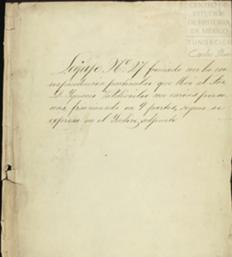 CENTRO DE
ESTUDIOS
DE HISTORIA
DE MÉXICO
FUNDACIÓN
Legajo Nº 47 formado con la co-
rrespondencia particular que llevó el Sor.
D. Ignacio con varias perso
nas, fraccionado en 9 partes, segun se
expresa en el Yndice adjunto